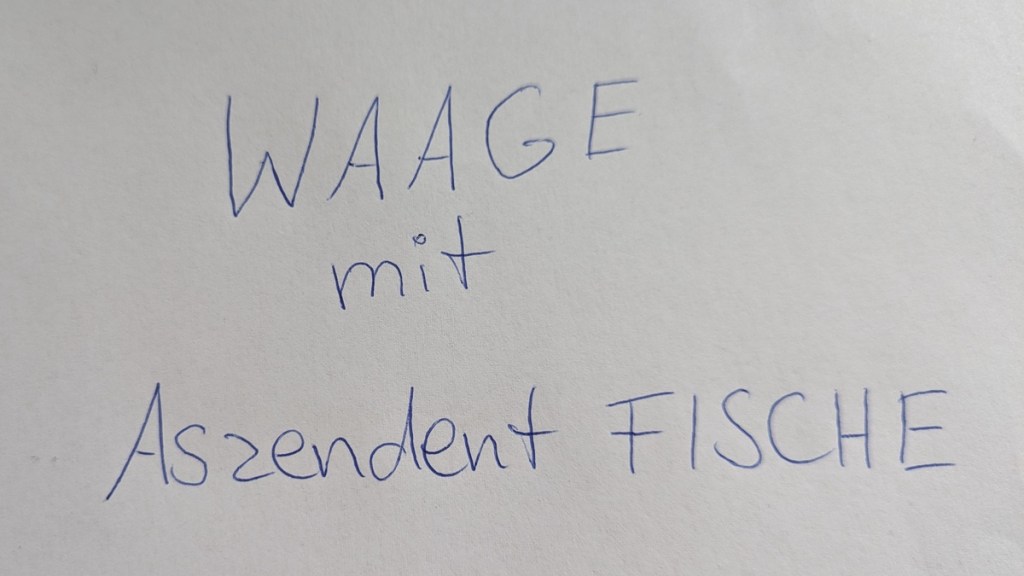 WAAGE
mit
Aszendent FISCHE